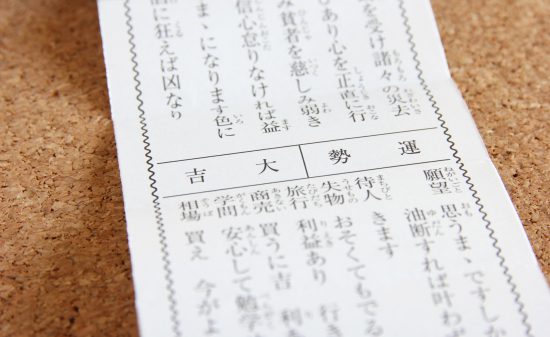 を受け諸々の災去
あり心を正直に行
み貧者を慈しみ弱き
信心怠りなければ益
まゝになります色に
に狂えば凶なり
運勢 大吉
願望 思うまゝですしか
油断すれば叶わず
待人 きます
失物 おそくてもでる
旅行 利益あり 行き
商売 買うに吉 利
学問 安心して勉学
相場 買え 今がよ